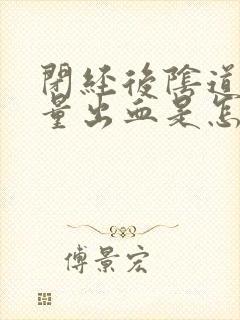 閉经後陰道
量出血是怎
傅景宏